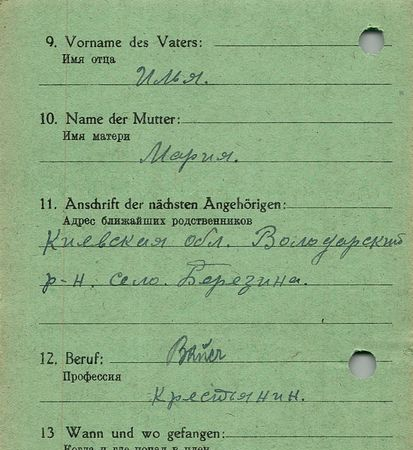 9. Vorname des Vaters:
Имя отца
Илья.
10. Name der Mutter:
Имя матери
Мария.
11. Anschrift der nächsten Angehörigen:
Адрес ближайших родственников
Киевская обл. Володарский
р-н. село. Березина.
12. Beruf:
Профессия
Крестьянин.
13 Wann und wo gefangen:
Когда и где попал в плен